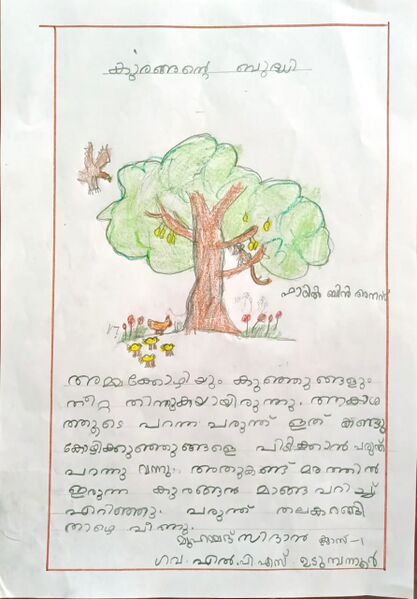 കുരങ്ങന്റെ ബുദ്ധി
ഫാരിൽ ബിൻ അനസ്
അമ്മക്കോഴിയും കുഞ്ഞുങ്ങളും
തീറ്റ തിന്നുകയായിരുന്നു. ആകാശ
ത്തൂടെ പറന്ന പരുന്ത് ഇത് കണ്ടു
കോഴിക്കുഞ്ഞുങ്ങളെ പിടിക്കാൻ പരുന്ത്
പറന്നു വന്നു. അതുകണ്ട് മരത്തിൽ
ഇരുന്ന കുരങ്ങൻ മാങ്ങ പറിച്ച്
എറിഞ്ഞു. പരുന്ത് തലകറങ്ങി
താഴെ വീണു.
മുഹമ്മദ് സിദാൻ ക്ലാസ്-1
ഗവ. എൽ. പി. എസ് ഉടുമ്പന്നൂർ